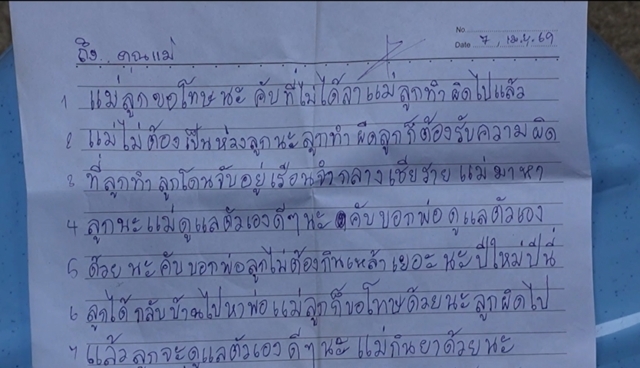 No
ถึง.. คุณแม่
Date 7, เม.ย. 69
1 แม่ ลูกขอโทษนะ คับที่ไม่ได้ลา แม่ ลูกทำ ผิดไปแล้ว
2 แม่ ไม่ต้อง เป็นห่วงลูกนะ ลูกทำ ผิดลูกก็ต้องรับความผิด
3 ที่ลูกทำ ลูกโดนจับอยู่เรือนจำกลางเชียงราย แม่ มาหา
4 ลูกนะแม่ดูแลตัวเองดีๆนะ คับบอกพ่อ ดูแลตัวเอง
5 ด้วย นะ คับบอกพ่อลูกไม่ต้องกินเหล้า เยอะ นะปีใหม่ปีนี้
6 ลูกได้ กลับบ้านไปหาพ่อแม่ ลูกก็ขอโทษด้วยนะลูกผิดไป
7 แล้ว ลูกจะดูแลตัวเอง ดีๆนะ แม่กินยาด้วยนะ